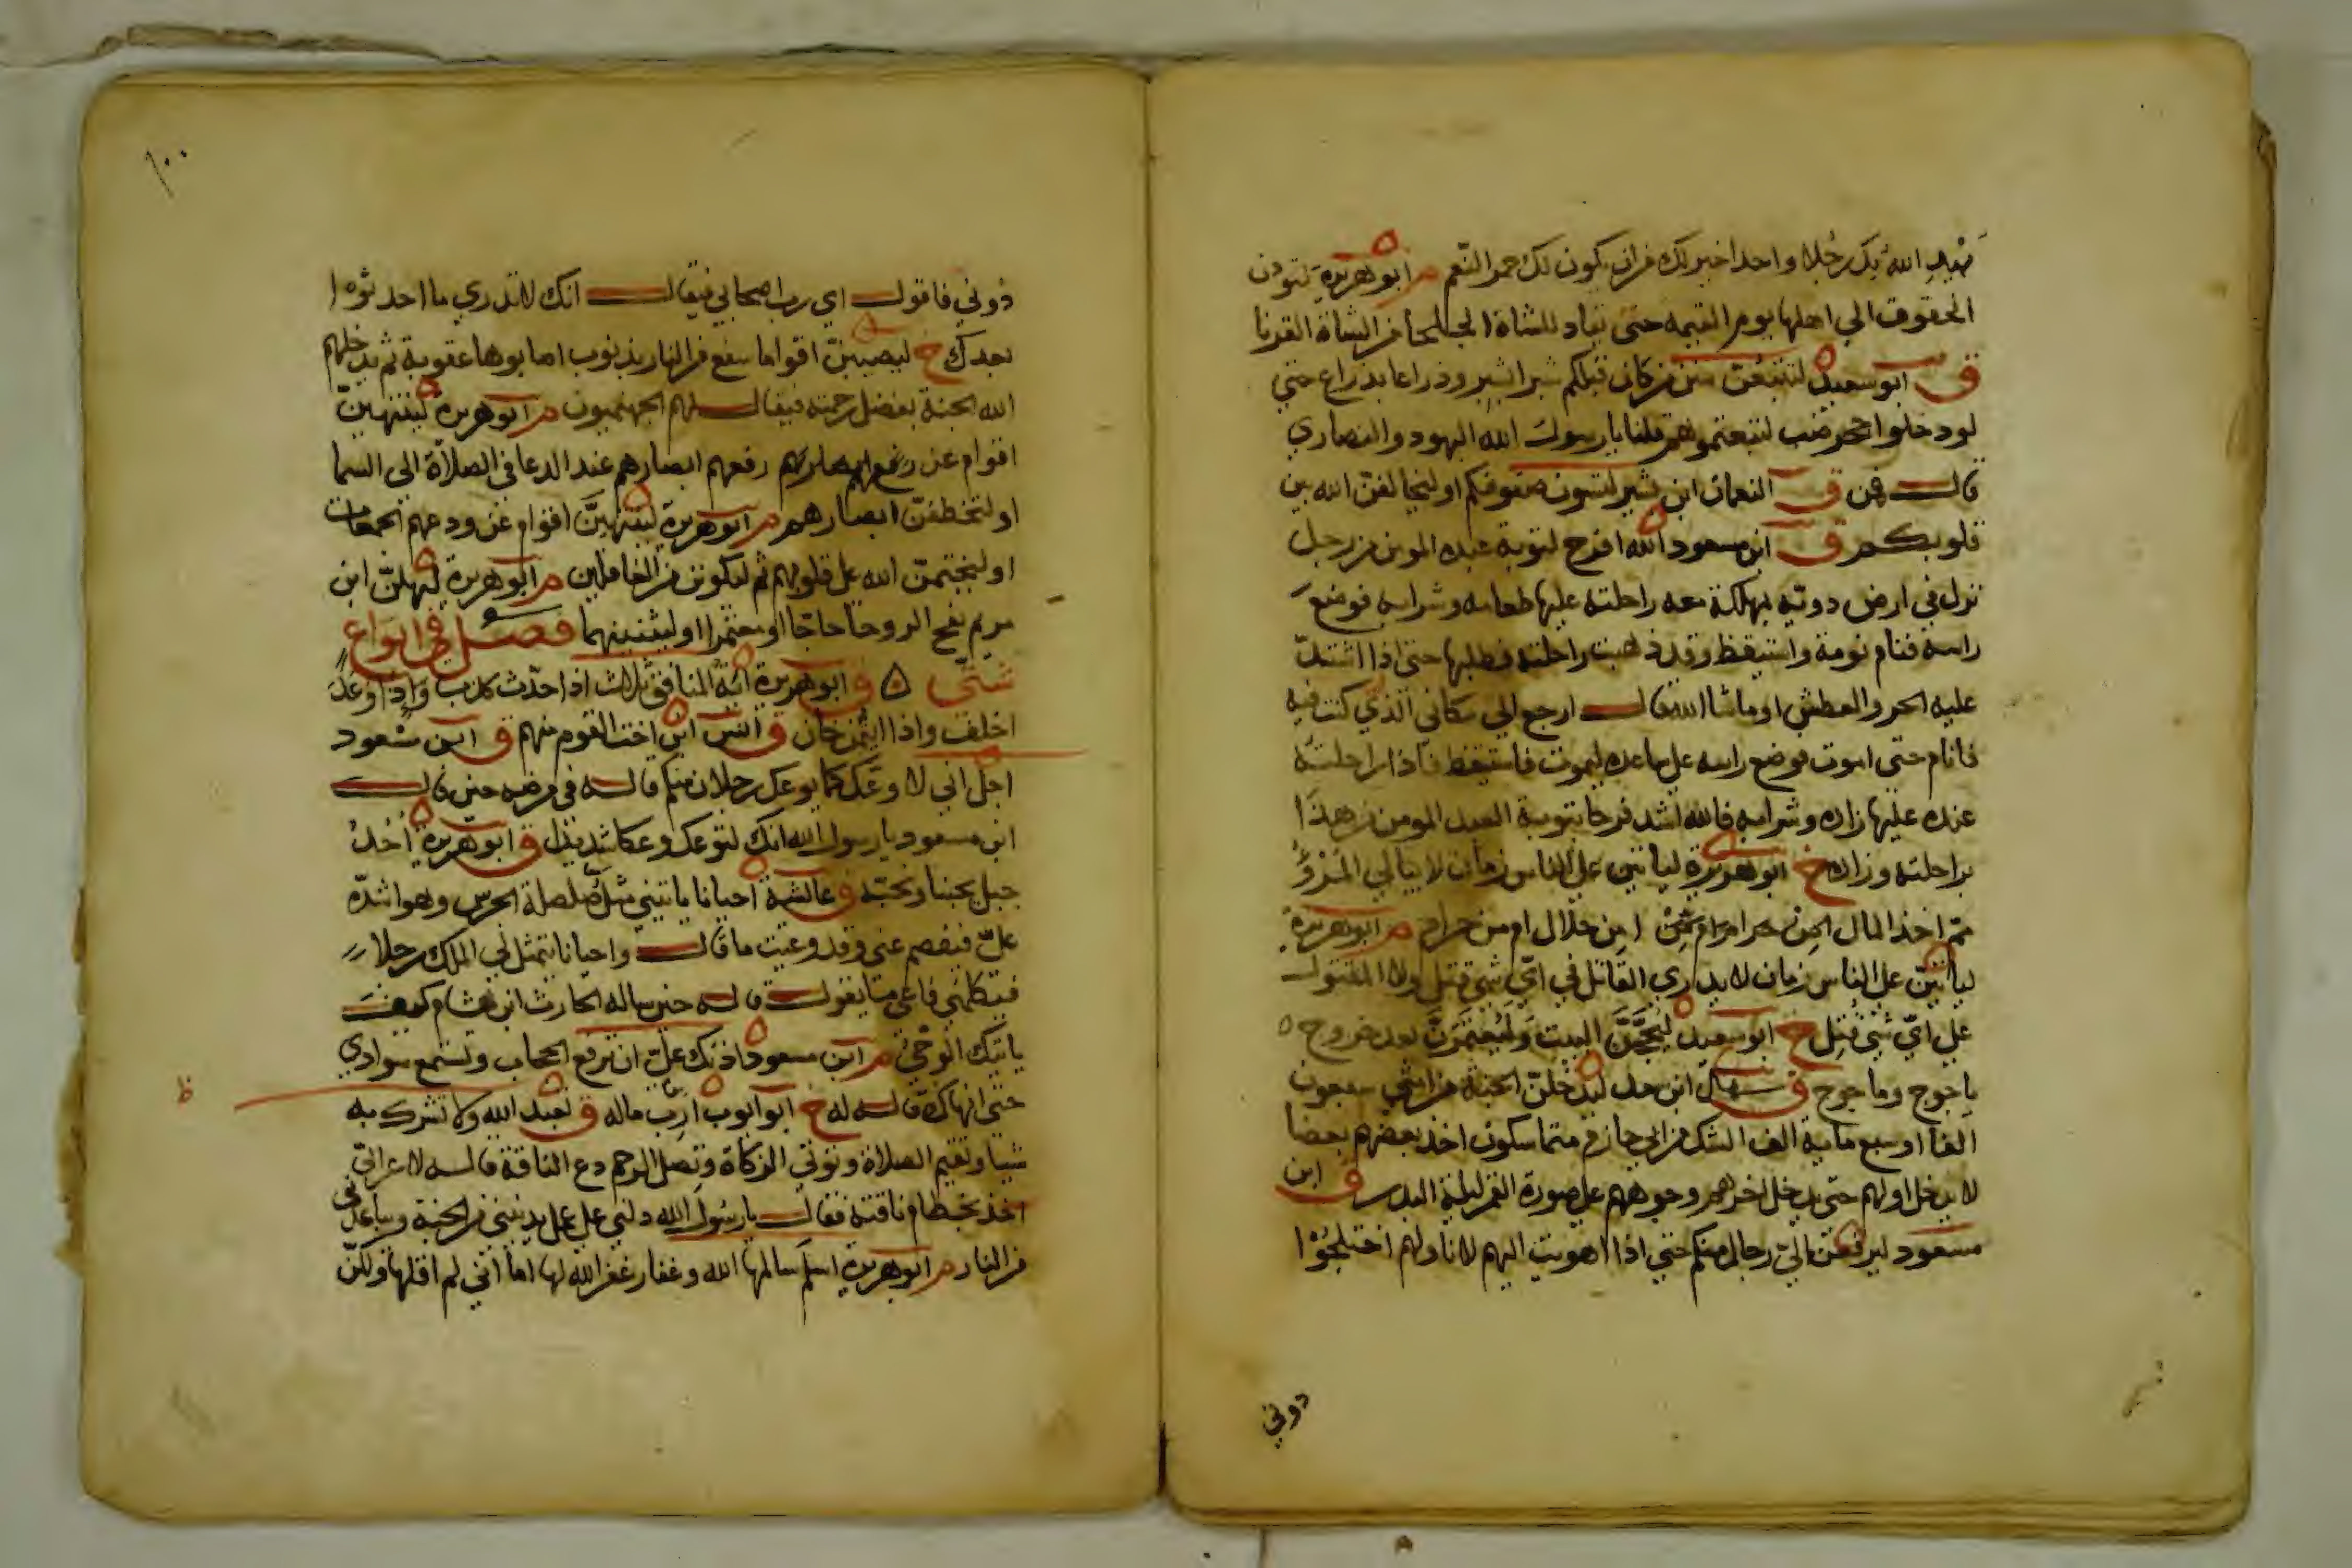 يهدي الله بك رجلا واحدا خير لك من ان يكون لك حمر النعم م ابو هريرة لتؤدن
الحقوق الي اهلها يوم القيمه حتى تقاد للشاة الجلحا من الشاة القرنا
ق ابو سعيد لتتبعن سنن من كان قبلكم شبرا بشبر وذراعا بذراع حتي
لو دخلوا جحر ضب لتبعتموهم قلنا يا رسول الله اليهود والنصاري
قال فمن ق النعمان ابن بشير لتسون صفوفكم او ليخالفن الله بين
قلوبكم ق ابن مسعود لله افرح بتوبة عبده المومن من رجل
نزل في ارض دوية مهلكة معه راحلته عليها طعامه وشرابه فوضع
راسه فنام نومة واستيقظ وقد ذهبت راحلته فطلبها حتى اذا اشتد
عليه الحر والعطش او ما شا الله قال ارجع الي مكاني الذي كنت فيه
فانام حتى اموت فوضع راسه على ساعده ليموت فاستيقظ فاذا راحلته
عنده عليها زاده وشرابه فالله اشد فرحا بتوبة العبد المومن من هذا
براحلته وزاده خ ابو هريرة لياتين على الناس زمان لا يبالي المرؤ
بم اخذ المال امن حلال ام من حرام م ابو هريرة
لياتين على الناس زمان لا يدري القاتل في اي شي قتل ولا المقتول
على اي شي قتل خ ابو سعيد ليحجن البيت وليعتمرن بعد خروج
ياجوج وماجوج ق سهل ابن سعد ليدخلن الجنة من امتي سبعون
الفا او سبع ماية الف الشك من ابي حازم متماسكون اخذ بعضهم بعضا
لا يدخل اولهم حتى يدخل اخرهم وجوههم على صورة القمر ليلة البدر ق ابن
مسعود ليرفعن الي رجال منكم حتي اذا اهويت اليهم لاناولهم اختلجوا
دوني
١٠٠
دوني فاقول اي رب اصحابي فيقال انك لا تدري ما احدثوا
بعدك خ ليصيبن اقواما سفع من النار بذنوب اصابوها عقوبة ثم يدخلهم
الله الجنة بفضل رحمته فيقال لهم الجهنميون م ابو هريرة لينتهين
اقوام عن رفعهم ابصارهم عند الدعا في الصلاة الى السما
او لتخطفن ابصارهم م ابو هريرة لينتهين اقوام عن ودعهم الجمعات
او ليختمن الله على قلوبهم ثم ليكونن من الغافلين م ابو هريرة ليهلن ابن
مريم بفج الروحا حاجا او معتمرا او ليثنينهما فصل في انواع
شتى ق ابو هريرة اية المنافق ثلاث اذا حدث كذب واذا وعد
اخلف واذا ايتمن خان ق انس ابن اخت القوم منهم ق ابن مسعود
اجل اني لا وعك كما يوعك رجلان منكم قاله في مرضه حين قال
ابن مسعود يا رسول الله انك لتوعك وعكا شديدا ق ابو هريرة احد
جبل يحبنا ونحبه ق عائشة احيانا ياتيني مثل صلصلة الجرس وهو اشده
علي فيفصم عني وقد وعيت ما قال واحيانا يتمثل لي الملك رجلا
فيكلمني فاعي ما يقول قاله حين ساله الحارث ابن هشام كيف
ياتيك الوحي م ابن مسعود اذنك علي ان ترفع الحجاب وتستمع سوادي
حتى انهاك قاله له خ ابو ايوب ارب ماله ق تعبد الله ولا تشرك به
شيا وتقيم الصلاة وتوتي الزكاة وتصل الرحم دع الناقة قاله لاعرابي
اخذ بخطام ناقته فقال يا رسول الله دلني على عمل يدنيني من الجنة ويباعدني
من النار م ابو هريرة اسلم سالمها الله وغفار غفر الله لها اما اني لم اقلها ولكن